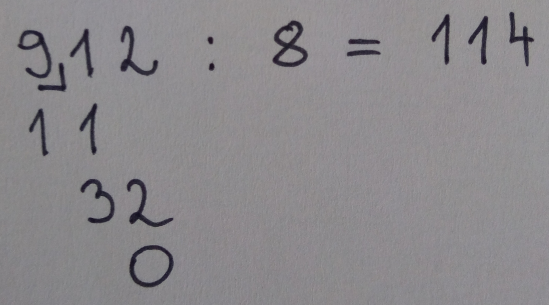 912 : 8 = 114
11
32
0